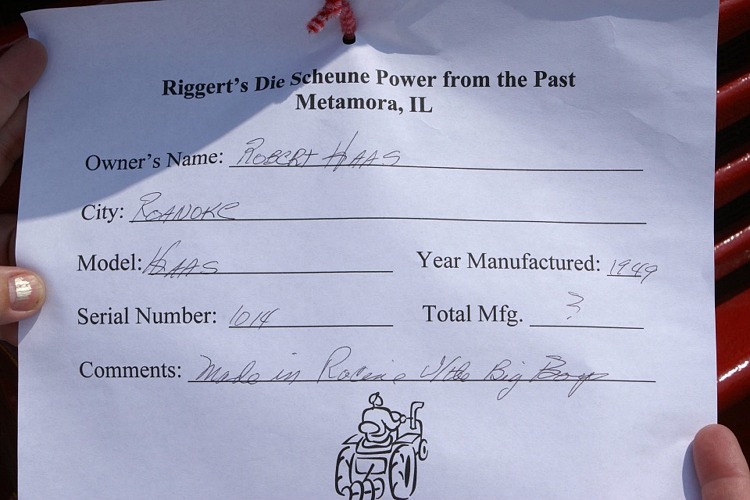 Riggert's Die Scheune Power from the Past
Metamora, IL
Owner's Name: ROBERT HAAS
City: ROANOKE
Model: HAAS Year Manufactured: 1949
Serial Number: 1014 Total Mfg. ?
Comments: Made in Racine W/the Big Boys